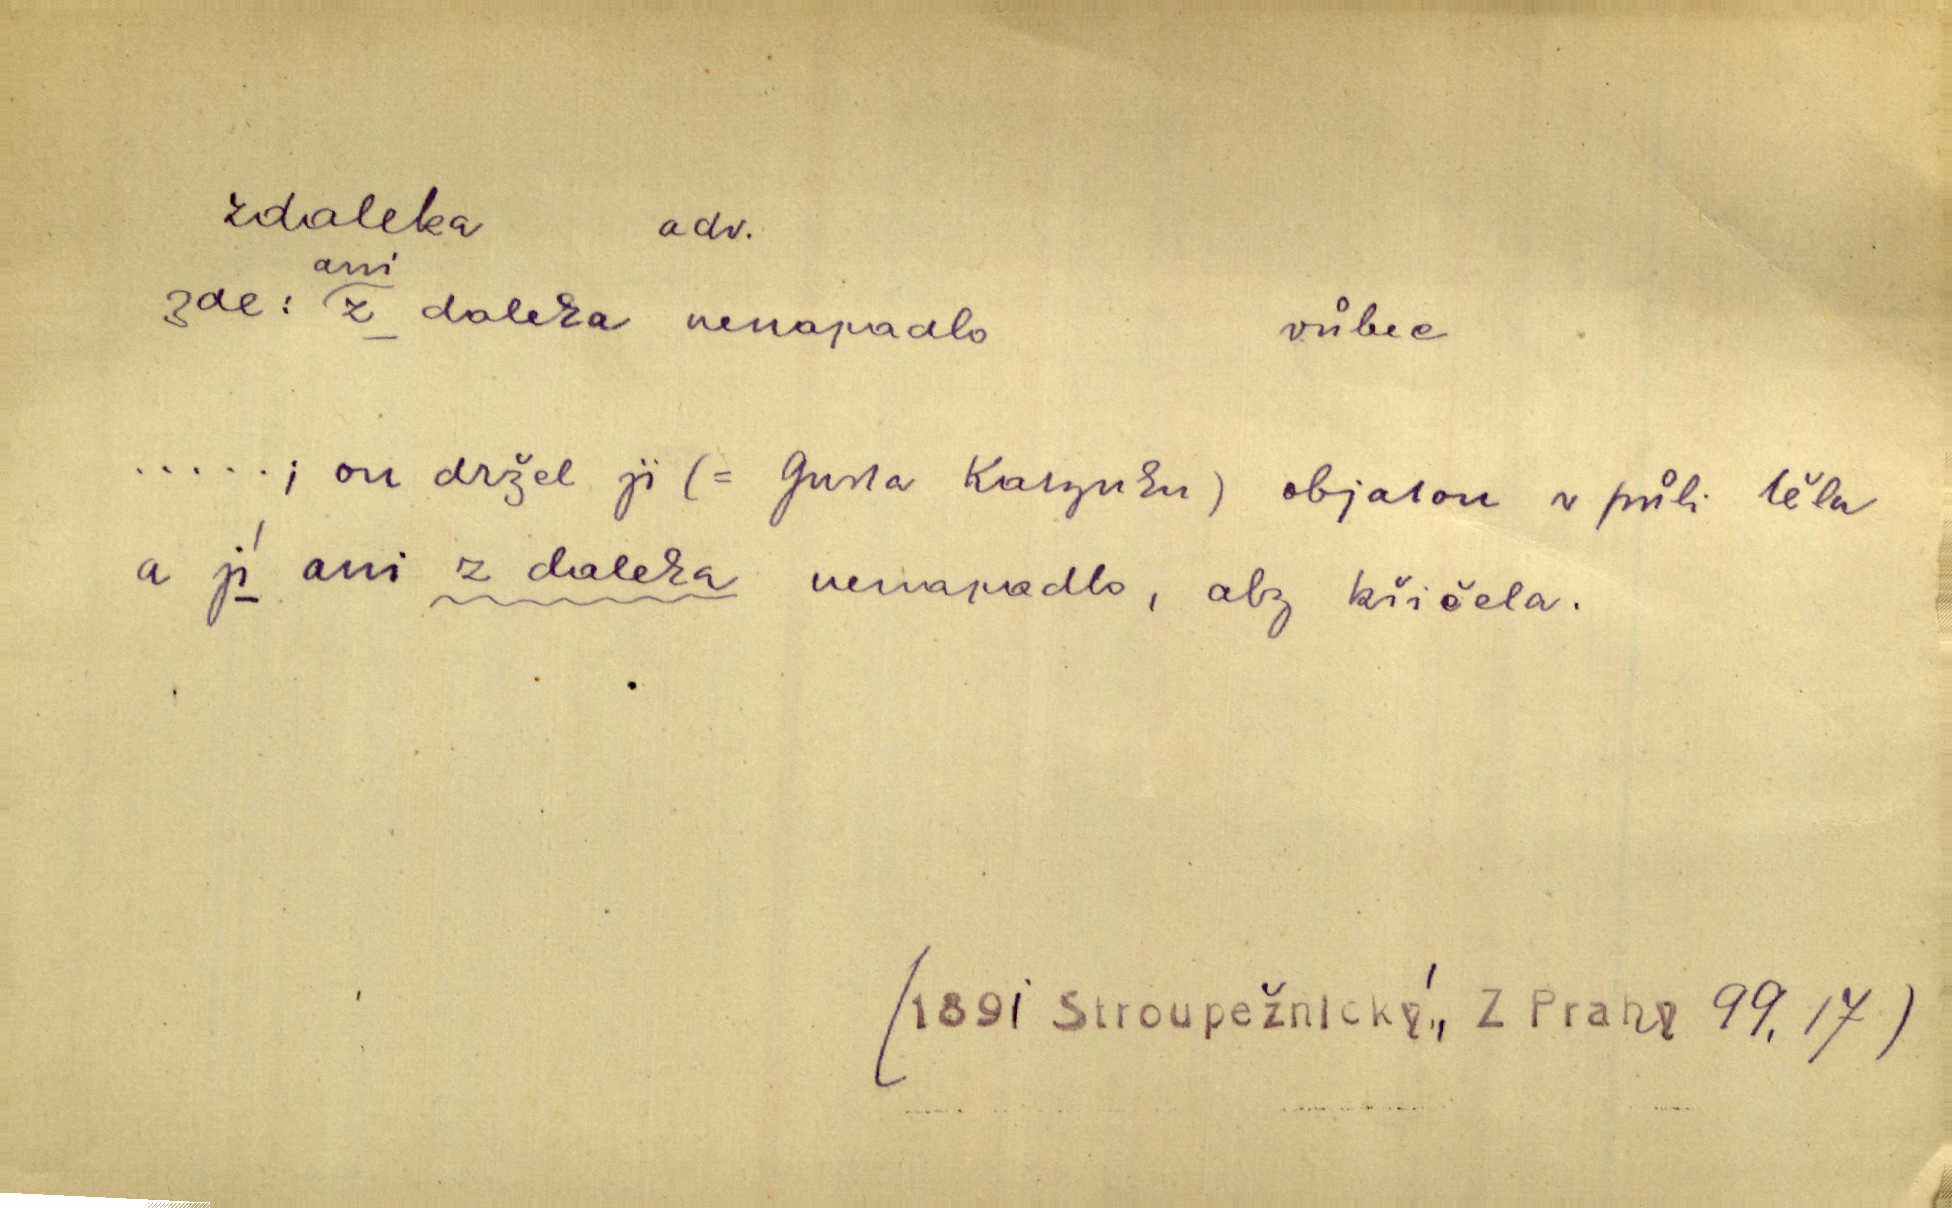 zdaleka adv.
zde: ani z daleka nenapadlo vůbec
.....; on držel ji (= Katynku) objatou v půli těla
a jí ani z daleka nenapadlo, aby křičela.
(1891 Stroupežnický, Z Prahy 99, 17)